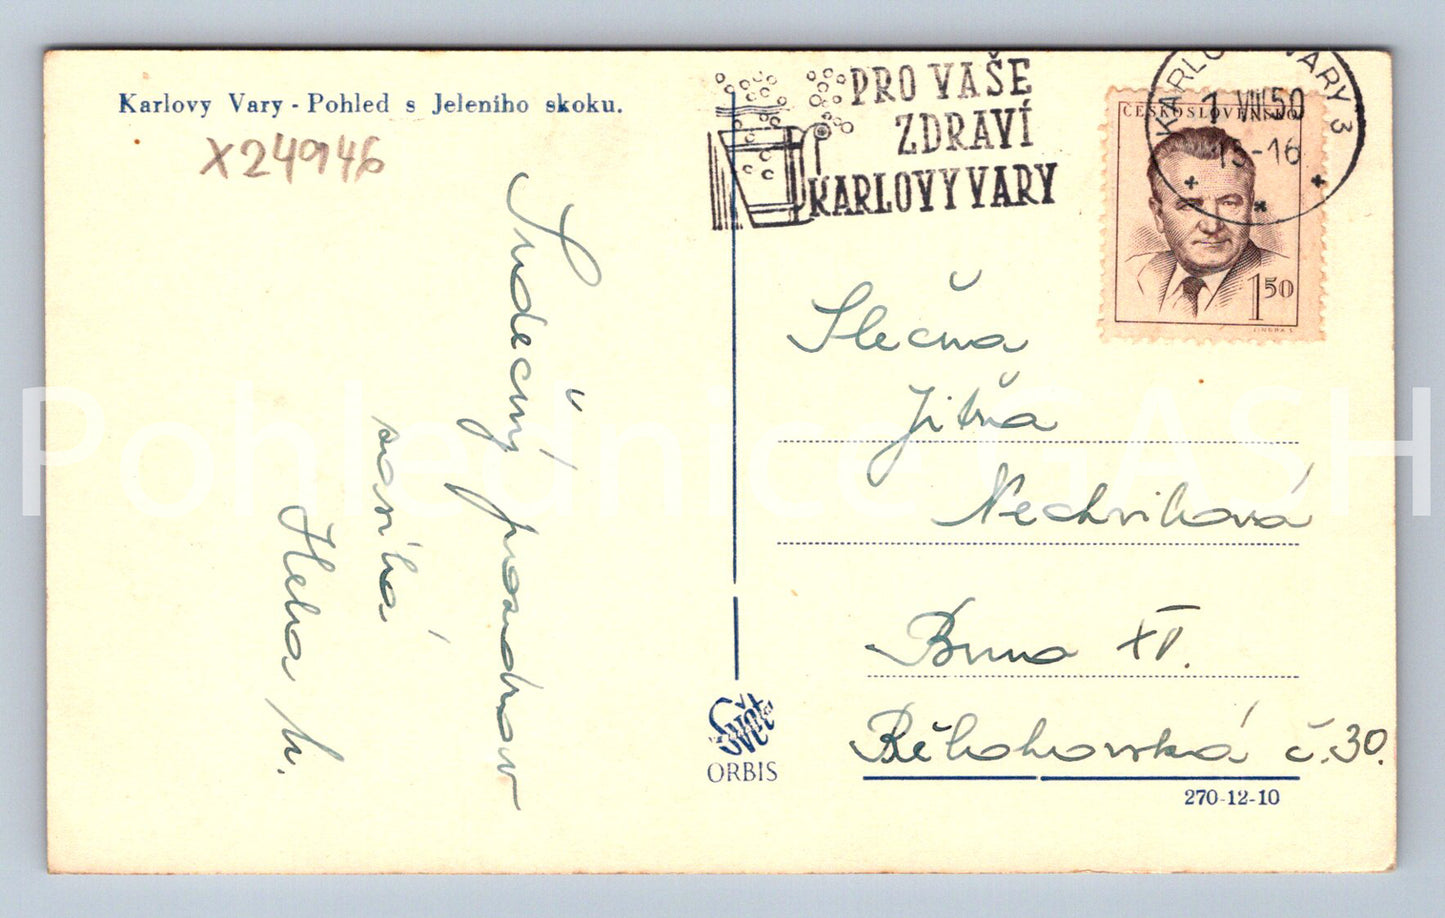 Karlovy Vary - Pohled s Jeleního skoku.
X24946
PRO VAŠE
ZDRAVÍ
KARLOVY VARY
KARLOVY VARY 3
1 VIII 50
15-16
ČESKOSLOVENSKO
1 50
Srdečný pozdrav
posílá
Helena
Slečna
Jiřina
Nechvílová
Brno XV.
Bělohorská č. 30.
Svět
ORBIS
270-12-10
Pohlednice GASH